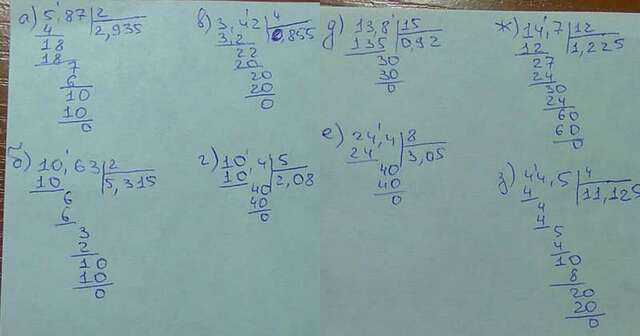 а) 5,87 | 2
4 | 2,935
18
18
7
6
10
10
0
б) 10,63 | 2
10 | 5,315
6
6
3
2
10
10
0
в) 3,42 | 4
3,2 | 0,855
22
20
20
20
0
г) 10,4 | 5
10 | 2,08
40
40
0
д) 13,8 | 15
135 | 0,92
30
30
0
е) 24,4 | 8
24 | 3,05
40
40
0
ж) 14,7 | 12
12 | 1,225
27
24
30
24
60
60
0
з) 44,5 | 4
4 | 11,125
4
4
5
4
10
8
20
20
0